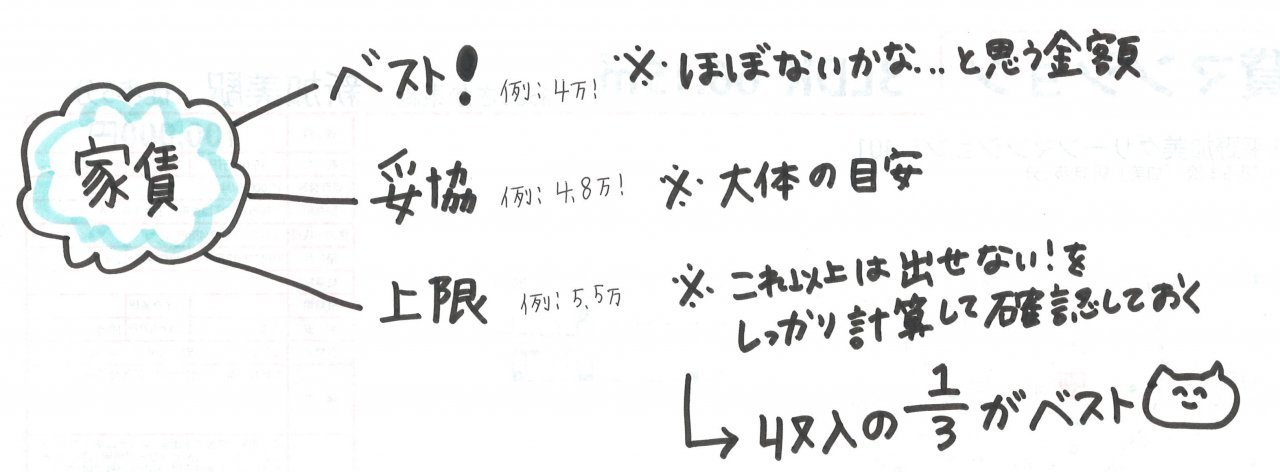 家賃
ベスト! 例:4万! ※ほぼないかな…と思う金額
妥協 例:4.8万! ※大体の目安
上限 例:5.5万 ※これ以上は出せない!を
しっかり計算して確認しておく
↳収入の1/3がベスト